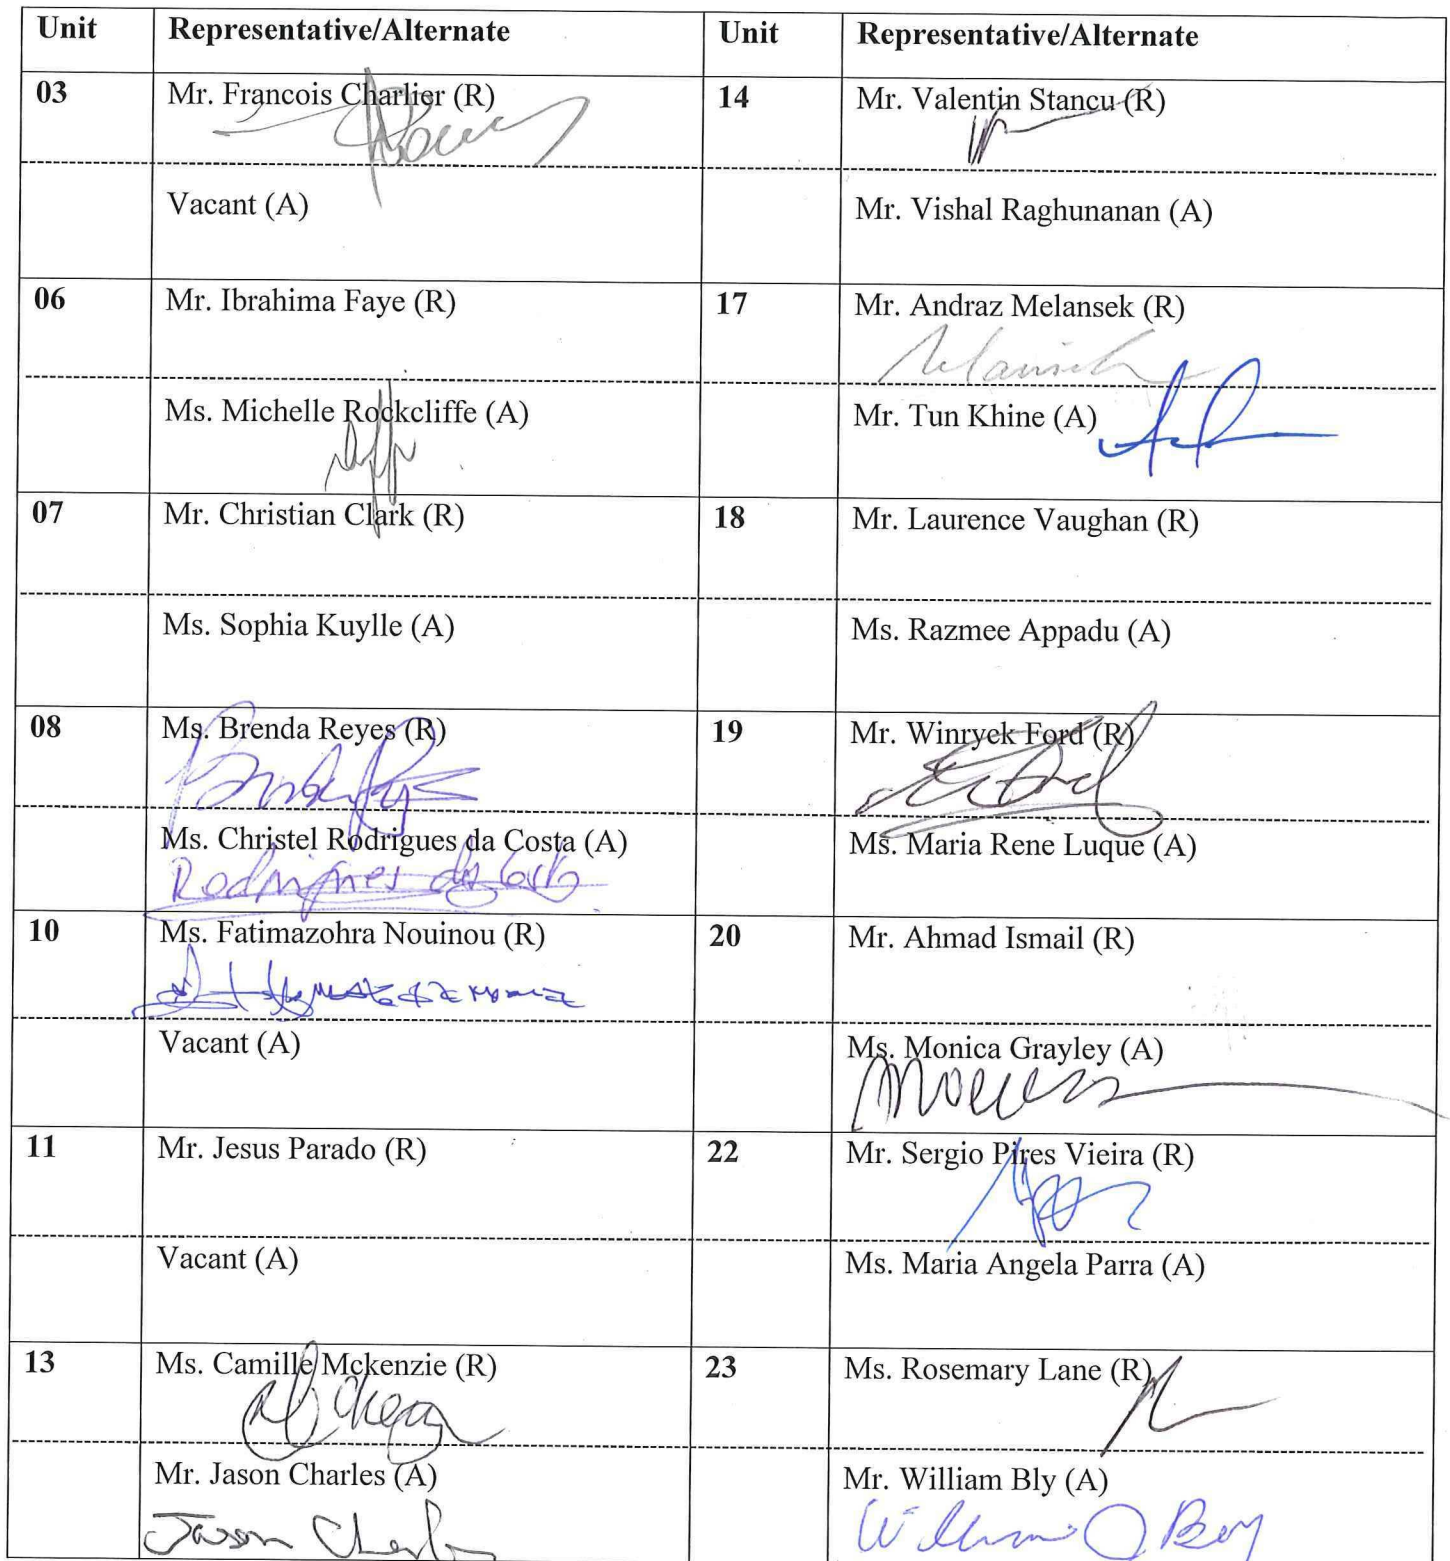 Unit Representative/Alternate Unit Representative/Alternate
03 Mr. Francois Charlier (R) 14 Mr. Valentin Stancu (R)
Vacant (A) Mr. Vishal Raghunanan (A)
06 Mr. Ibrahima Faye (R) 17 Mr. Andraz Melansek (R)
Ms. Michelle Rockcliffe (A) Mr. Tun Khine (A)
07 Mr. Christian Clark (R) 18 Mr. Laurence Vaughan (R)
Ms. Sophia Kuylle (A) Ms. Razmee Appadu (A)
08 Ms. Brenda Reyes (R) 19 Mr. Winryck Ford (R)
Ms. Christel Rodrigues da Costa (A) Ms. Maria Rene Luque (A)
Rodrigues da Costa
10 Ms. Fatimazohra Nouinou (R) 20 Mr. Ahmad Ismail (R)
Vacant (A) Ms. Monica Grayley (A)
11 Mr. Jesus Parado (R) 22 Mr. Sergio Pires Vieira (R)
Vacant (A) Ms. Maria Angela Parra (A)
13 Ms. Camille Mckenzie (R) 23 Ms. Rosemary Lane (R)
Mr. Jason Charles (A) Mr. William Bly (A)
Jason Charles William Bly